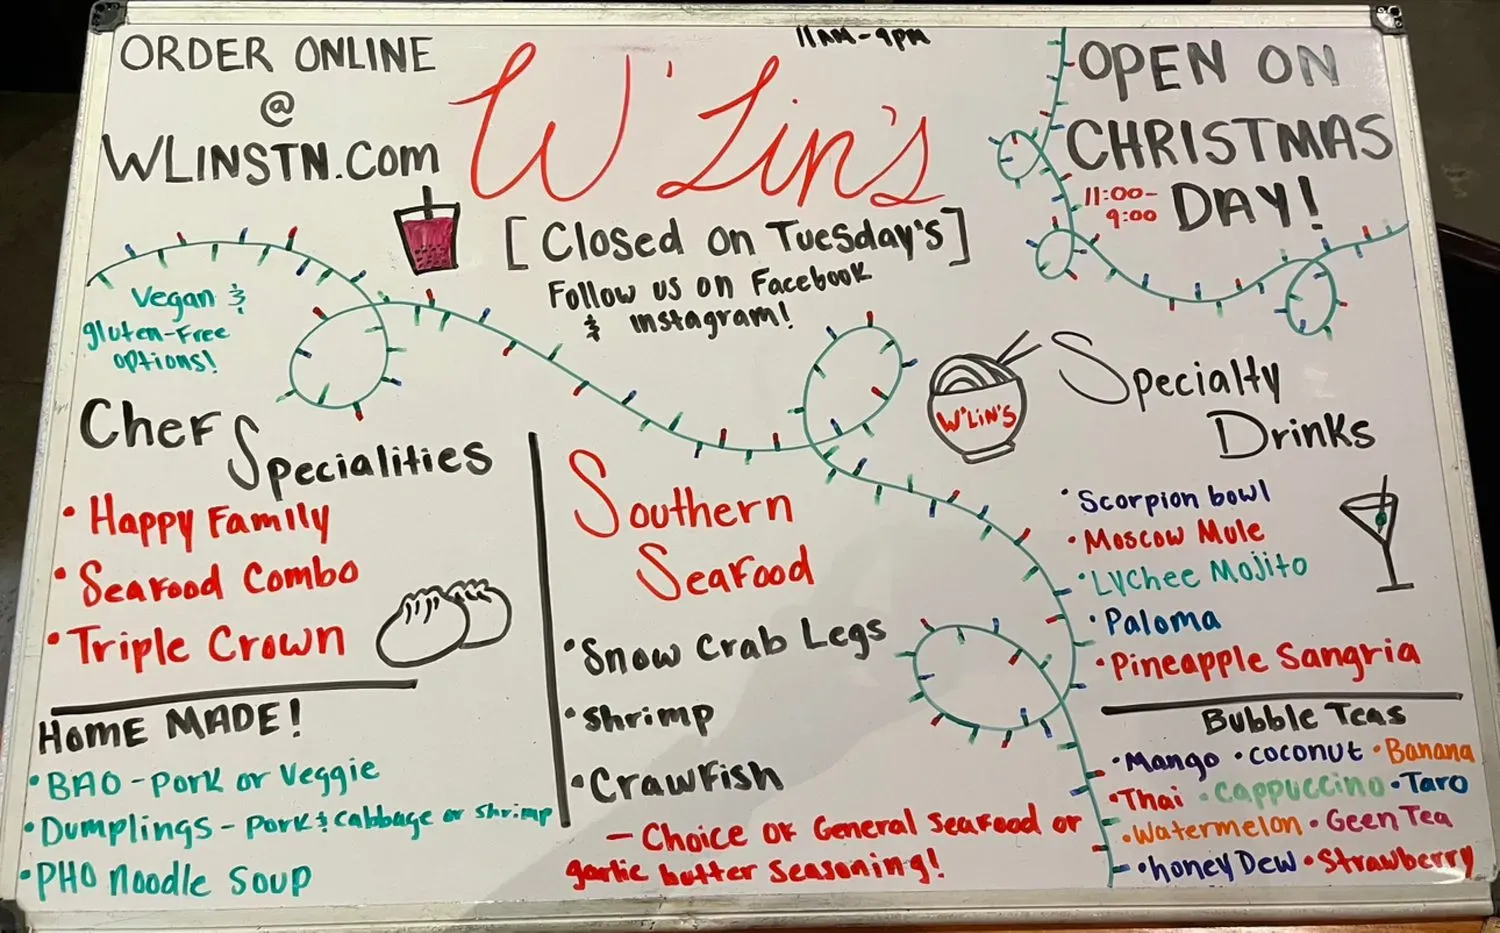 ORDER ONLINE
@
WLINSTN.COM
11AM-9PM
W'Lin's
[Closed on Tuesday's]
Follow us on Facebook
& Instagram!
OPEN ON
CHRISTMAS
DAY!
11:00-
9:00
Vegan &
gluten-Free
options!
Chef
Specialities
• Happy Family
• Seafood Combo
• Triple Crown
HOME MADE!
• BAO - Pork or Veggie
• Dumplings - Pork & cabbage or shrimp
• PHO Noodle Soup
Southern
Seafood
• Snow Crab Legs
• Shrimp
• Crawfish
- Choice of General Seafood or
garlic butter Seasoning!
W'LIN'S
Specialty
Drinks
• Scorpion bowl
• Moscow Mule
• Lychee Mojito
• Paloma
• Pineapple Sangria
Bubble Teas
• Mango • coconut • Banana
• Thai • Cappuccino • Taro
• Watermelon • Geen Tea
• honey Dew • Strawberry